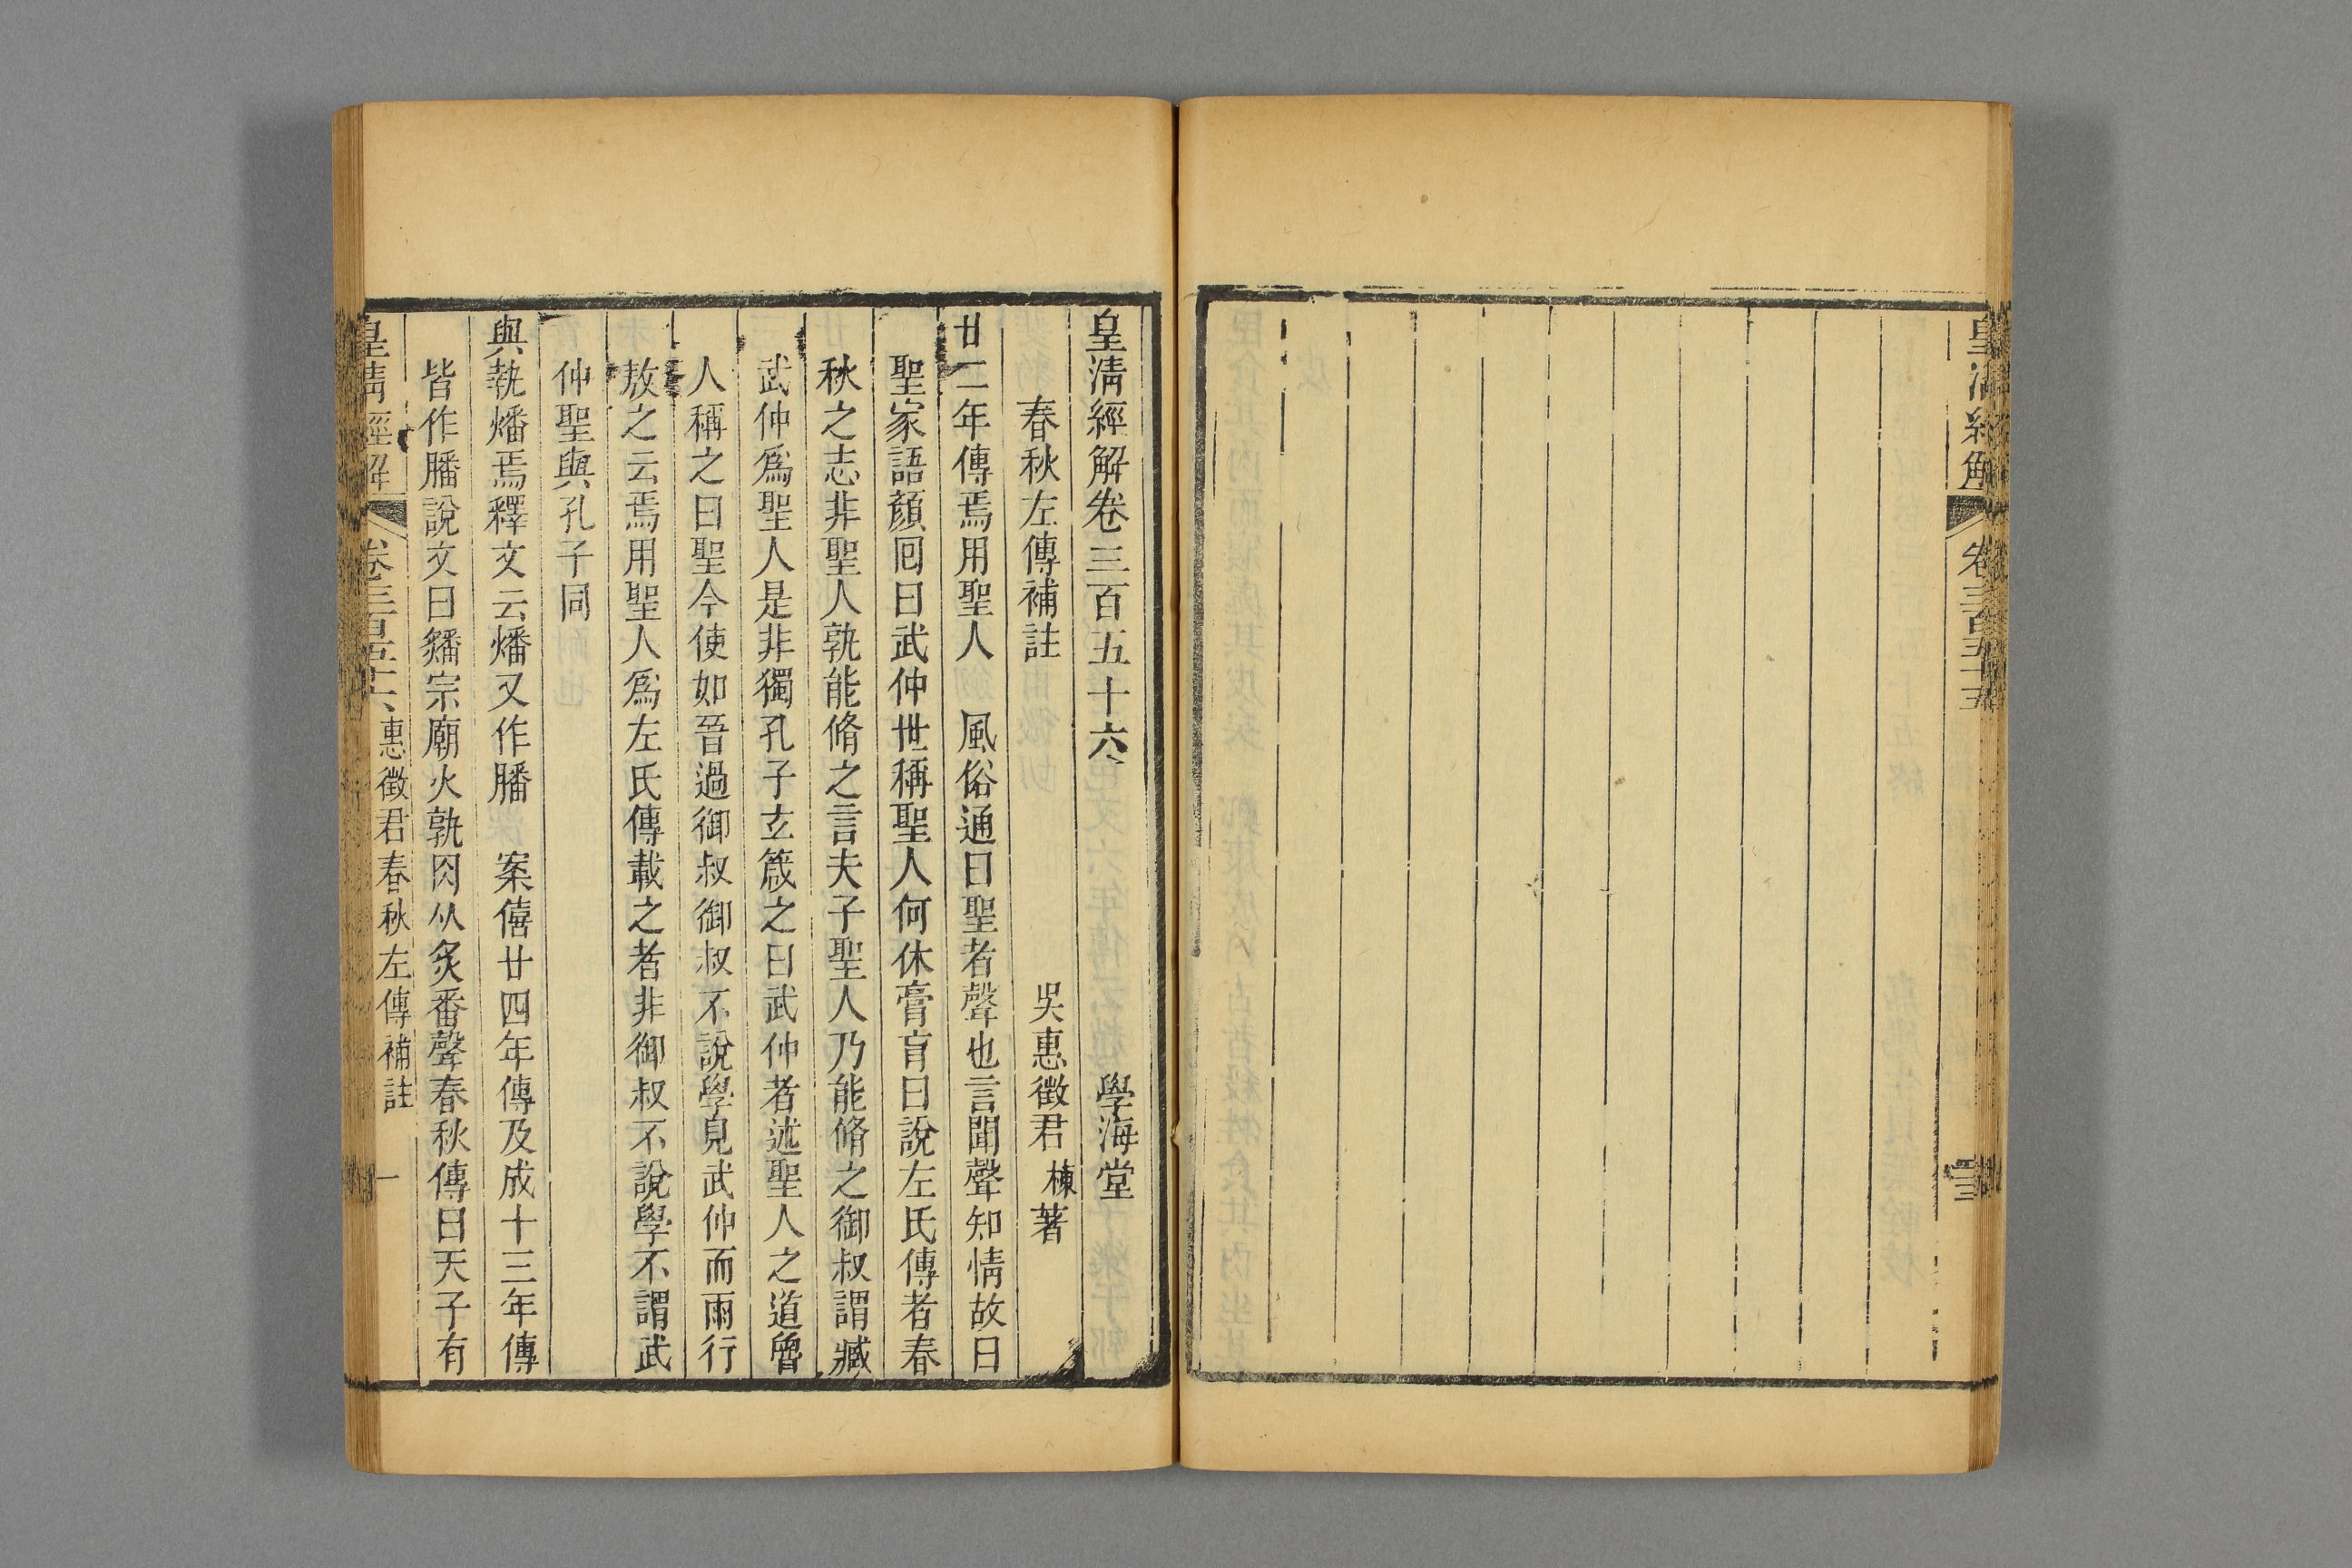 皇清經解
卷三百五十五
皇清經解卷三百五十六
學海堂
春秋左傳補註
吳惠徵君棟著
廿二年傳焉用聖人　風俗通曰聖者聲也言聞聲知情故曰
聖家語顏回曰武仲世稱聖人何休膏肓曰說左氏傳者春
秋之志非聖人孰能脩之言夫子聖人乃能脩之御叔謂臧
武仲爲聖人是非獨孔子玄箴之曰武仲者述聖人之道魯
人稱之曰聖今使如晉過御叔御叔不說學見武仲而雨行
敖之云焉用聖人爲左氏傳載之者非御叔不說學不謂武
仲聖與孔子同
與執燔焉釋文云燔又作膰　案僖廿四年傳及成十三年傳
皆作膰說文曰䊩宗廟火孰肉从炙番聲春秋傳曰天子有
皇清經解
卷三百五十六
惠徵君春秋左傳補註
一